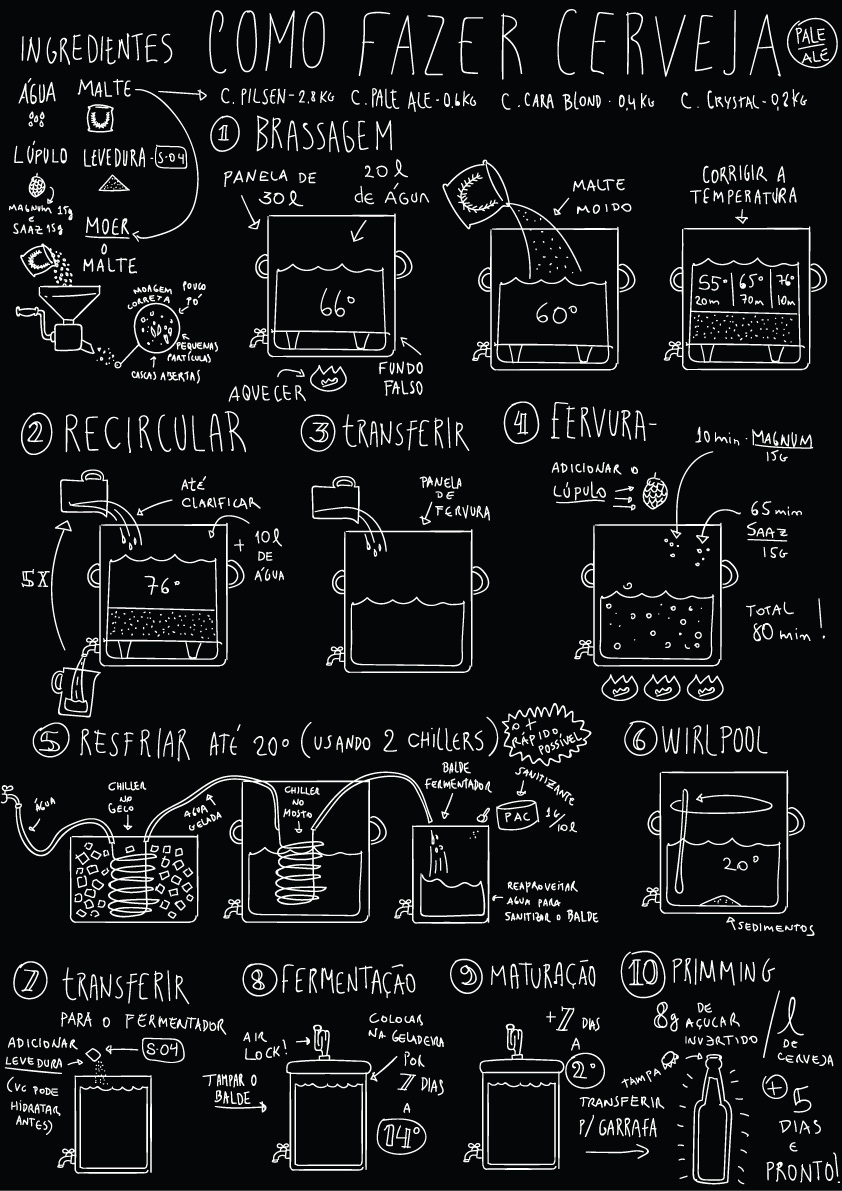 COMO FAZER CERVEJA
PALE
ALE
INGREDIENTES
ÁGUA
MALTE
C. PILSEN - 2,8 KG
C. PALE ALE - 0,6 KG
C. CARA BLOND - 0,4 KG
C. CRYSTAL - 0,2 KG
LÚPULO
LEVEDURA - S-04
MAGNUM 15g
E
SAAZ 15g
MOER
O
MALTE
MOAGEM
CORRETA
POUCO
PÓ
PEQUENAS
PARTÍCULAS
CASCAS ABERTAS
1 BRASSAGEM
PANELA DE
30l
20l
de ÁGUA
66°
AQUECER
FUNDO
FALSO
MALTE
MOIDO
60°
CORRIGIR A
TEMPERATURA
55° 65° 76°
20m 70m 10m
2 RECIRCULAR
ATÉ
CLARIFICAR
+ 10l
DE
ÁGUA
5X
76°
3 TRANSFERIR
PANELA
DE
FERVURA
4 FERVURA-
ADICIONAR O
LÚPULO
10 min - MAGNUM
15G
65 min
SAAZ
15G
TOTAL
80 min!
5 RESFRIAR ATÉ 20° (USANDO 2 CHILLERS)
O +
RÁPIDO
POSSÍVEL
ÁGUA
CHILLER
NO
GELO
ÁGUA
GELADA
CHILLER
NO
MOSTO
BALDE
FERMENTADOR
SANITIZANTE
PAC
1G/
10l
REAPROVEITAR
ÁGUA PARA
SANITIZAR O BALDE
6 WIRLPOOL
20°
SEDIMENTOS
7 TRANSFERIR
PARA O FERMENTADOR
ADICIONAR
LEVEDURA
S-04
(VC PODE
HIDRATAR
ANTES)
8 FERMENTAÇÃO
AIR
LOCK!
TAMPAR O
BALDE
COLOCAR
NA GELADEIRA
POR
7 DIAS
A
14°
9 MATURAÇÃO
+7 DIAS
A
2°
TRANSFERIR
P/ GARRAFA
10 PRIMMING
8g DE
AÇUCAR
INVERTIDO
/l
DE
CERVEJA
TAMPA
+ 5
DIAS
E
PRONTO!